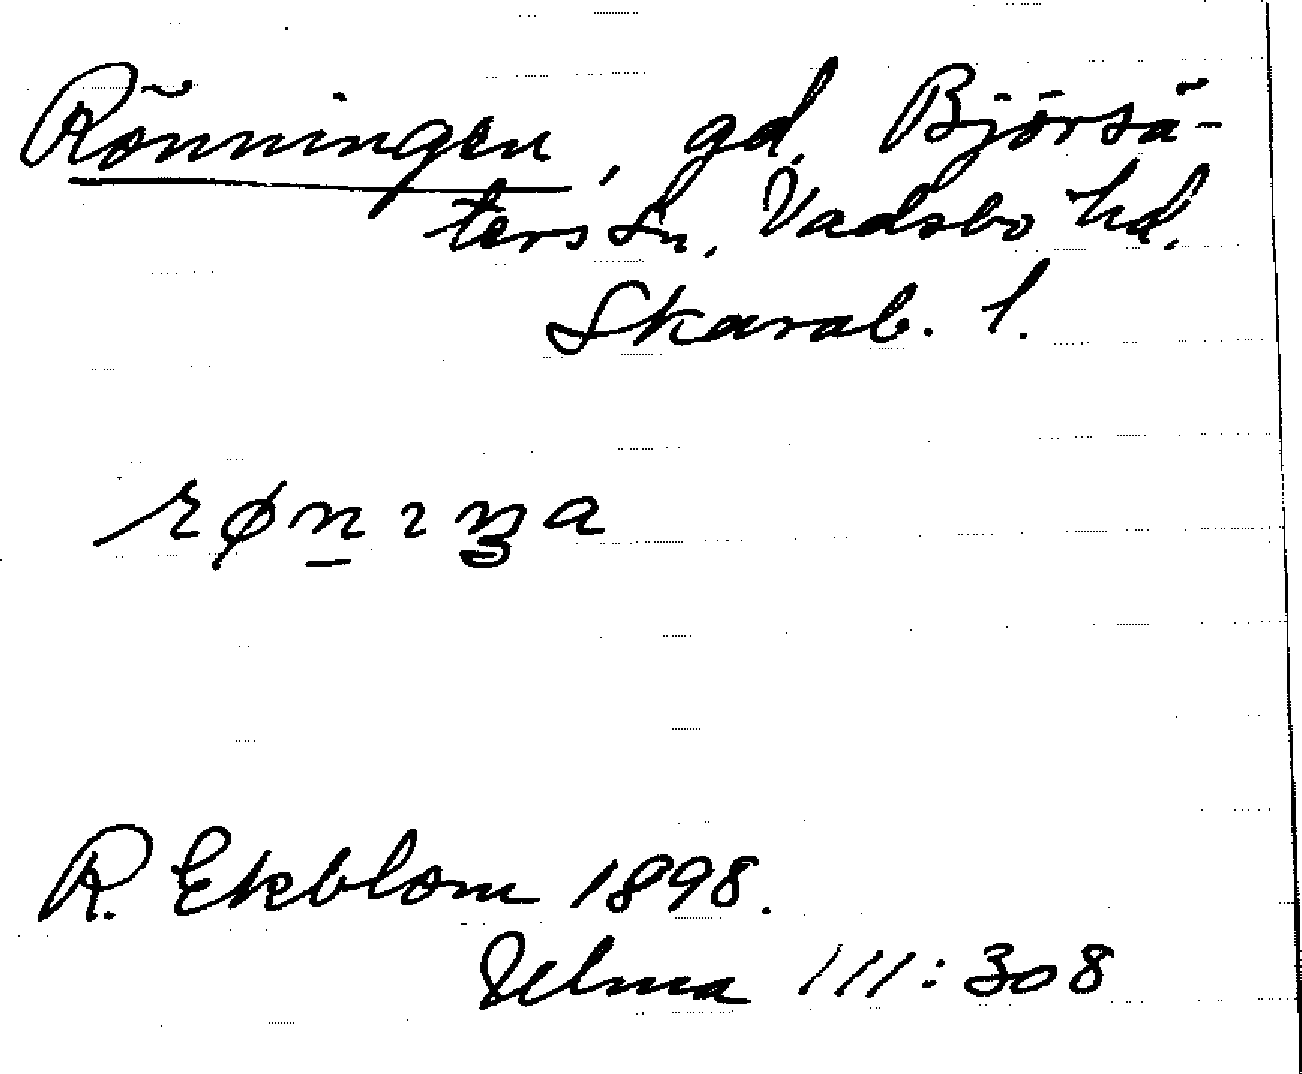 Rönningen, gd, Björsä-
ters sn, Vadsbo hd.
Skarab. l.
røn̲ɪŋa
R. Ekblom 1898.
Ulma 111:308